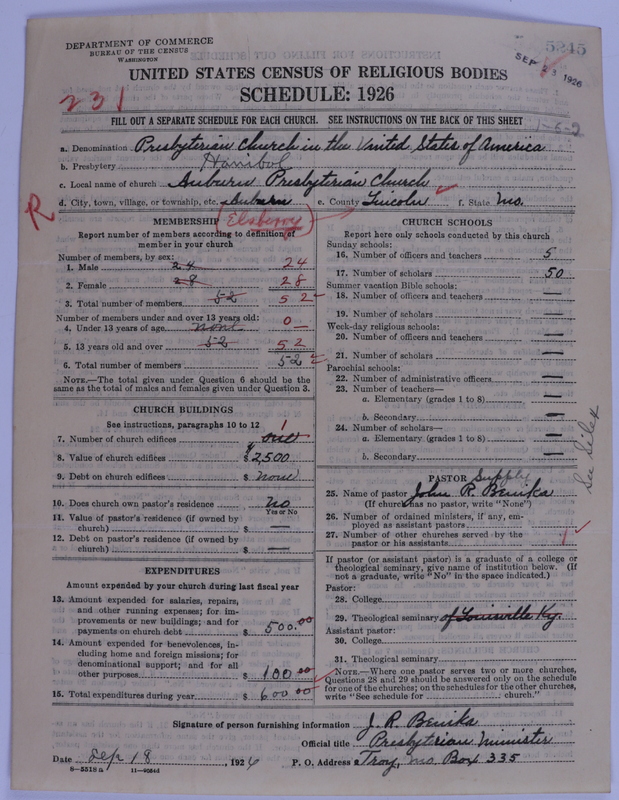 5245
DEPARTMENT OF COMMERCE
BUREAU OF THE CENSUS
WASHINGTON
SEP 23 1926
UNITED STATES CENSUS OF RELIGIOUS BODIES
SCHEDULE: 1926
231
FILL OUT A SEPARATE SCHEDULE FOR EACH CHURCH. SEE INSTRUCTIONS ON THE BACK OF THIS SHEET
a. Denomination Presbyterian Church in the United States of America
b. Presbytery Hanibol
c. Local name of church Auburn Presbyterian Church
d. City, town, village, or township, etc. Auburn e. County Lincoln f. State Mo.
R
Elsberry
MEMBERSHIP
Report number of members according to definition of
member in your church
Number of members, by sex:
1. Male 24 24
2. Female 28 28
3. Total number of members 52 52
Number of members under and over 13 years old:
4. Under 13 years of age none 0
5. 13 years old and over 52 52
6. Total number of members 52
NOTE.—The total given under Question 6 should be the
same as the total of males and females given under Question 3.
CHURCH BUILDINGS
See instructions, paragraphs 10 to 12
7. Number of church edifices one 1
8. Value of church edifices $ 2,500
9. Debt on church edifices $ none
10. Does church own pastor's residence no
Yes or No
11. Value of pastor's residence (if owned by
church) $ —
12. Debt on pastor's residence (if owned by
church) $ —
EXPENDITURES
Amount expended by your church during last fiscal year
13. Amount expended for salaries, repairs,
and other running expenses; for im-
provements or new buildings; and for
payments on church debt $ 500.00
14. Amount expended for benevolences, in-
cluding home and foreign missions; for
denominational support; and for all
other purposes $ 100.00
15. Total expenditures during year $ 600.00
CHURCH SCHOOLS
Report here only schools conducted by this church
Sunday schools:
16. Number of officers and teachers 5
17. Number of scholars 50
Summer vacation Bible schools:
18. Number of officers and teachers —
19. Number of scholars —
Week-day religious schools:
20. Number of officers and teachers —
21. Number of scholars —
Parochial schools:
22. Number of administrative officers —
23. Number of teachers—
a. Elementary (grades 1 to 8) —
b. Secondary —
24. Number of scholars—
a. Elementary (grades 1 to 8) —
b. Secondary —
See Silex
PASTOR Supply
25. Name of pastor John R. Benika
(If church has no pastor, write "None")
26. Number of ordained ministers, if any, em-
ployed as assistant pastors
27. Number of other churches served by the
pastor or his assistants 1
If pastor (or assistant pastor) is a graduate of a college or
theological seminary, give name of institution below. (If
not a graduate, write "No" in the space indicated.)
Pastor:
28. College
29. Theological seminary of Louisville Ky.
Assistant pastor:
30. College
31. Theological seminary
NOTE.—Where one pastor serves two or more churches,
Questions 28 and 29 should be answered only on the schedule
for one of the churches; on the schedules for the other churches,
write "See schedule for church."
Signature of person furnishing information J. R. Benika
Official title Presbyterian Minister
Date Sep 18, 1926 P. O. Address Troy, Mo. Box 335
8—5518a 11—9084d